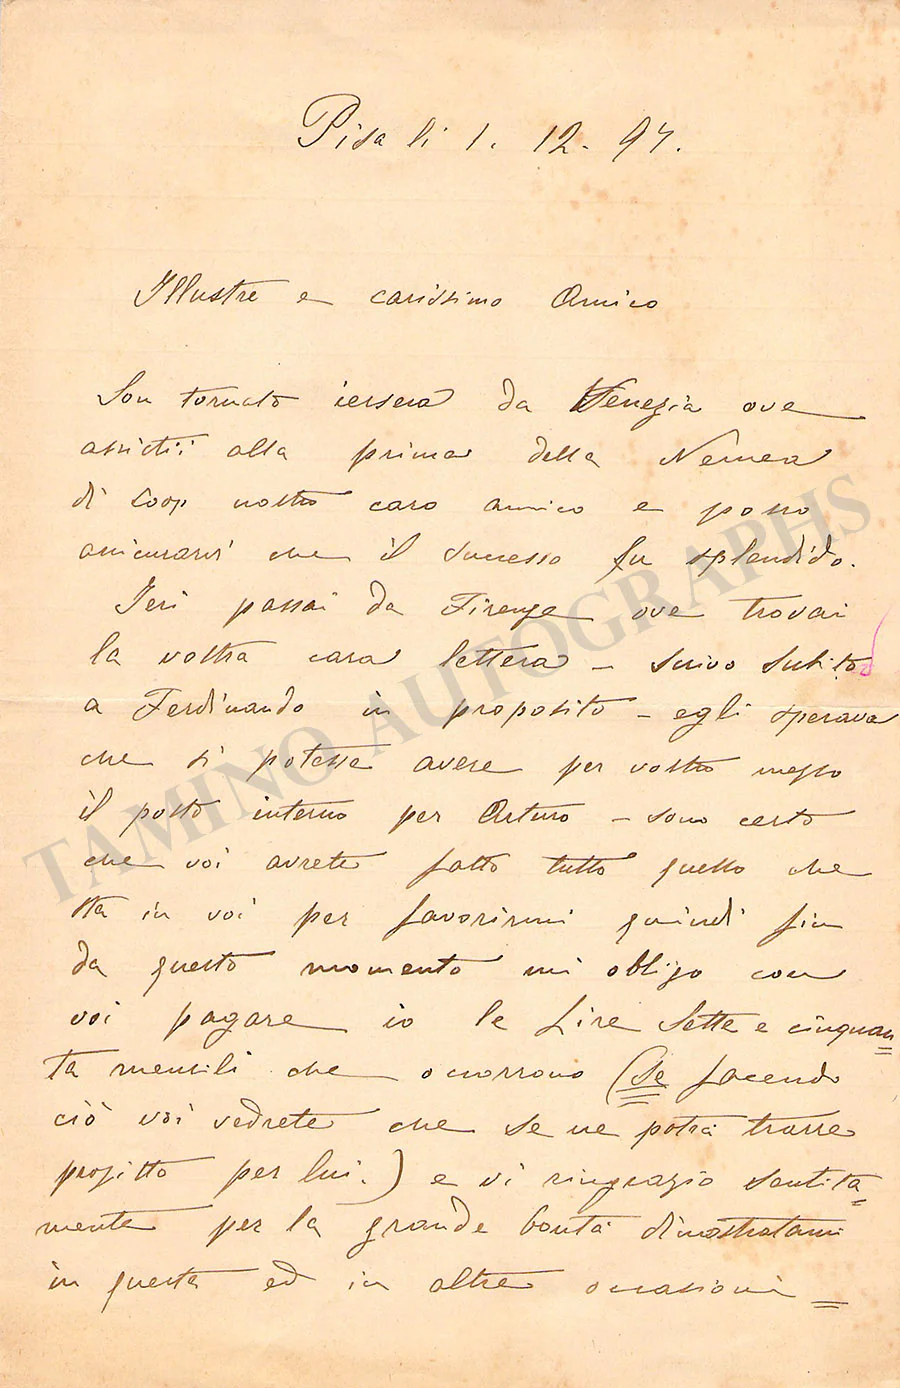 Pisa li 1. 12. 97.
Illustre e carissimo Amico
Son tornato iersera da Venezia ove
assistii alla prima della Nemea
di Coop nostro caro amico e posso
assicurarvi che il successo fu splendido.
Ieri passai da Firenze ove trovai
la vostra cara lettera – scrivo subito
a Ferdinando in proposito – egli sperava
che si potesse avere per vostro mezzo
il posto interno per Arturo – sono certo
che voi avrete fatto tutto quello che
sta in voi per favorirmi quindi fin
da questo momento mi obbligo con
voi pagare io le Lire Sette e cinquan
ta mensili che occorrono (se facendo
ciò voi vedrete che se ne potrà trarre
profitto per lui.) e vi ringrazio sentita=
mente per la grande bontà dimostratami
in questa ed in altre occasioni =
TAMINO AUTOGRAPHS